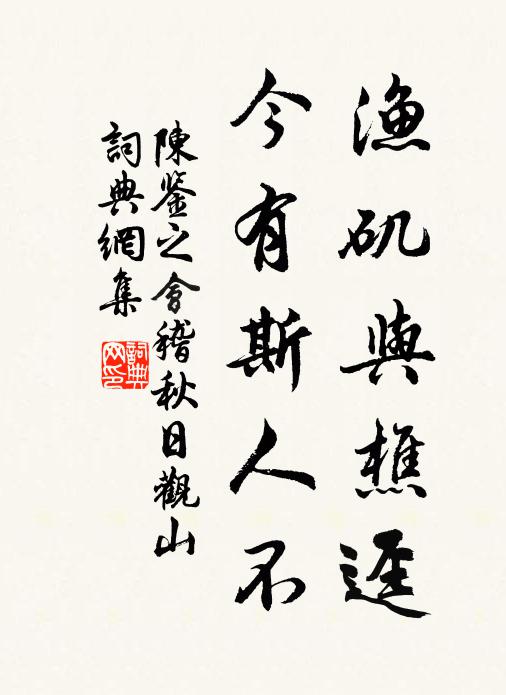 漁矶與樵逕
今有斯人不
陳鉴之會稽秋日觀山
詞典網集
詞典網印